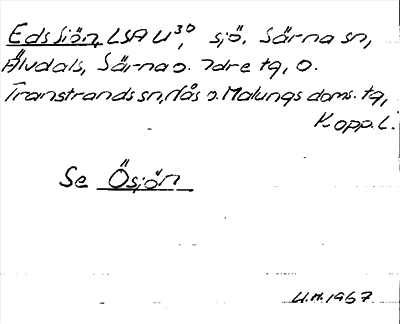 Edssjön, LSA U³⁰, sjö, Särna sn,
Älvdals, Särna o. Idre tg, o.
Transtrands sn, Nås o. Malungs doms. tg,
Kopp. L.
Se Ösjön
U.H. 1967